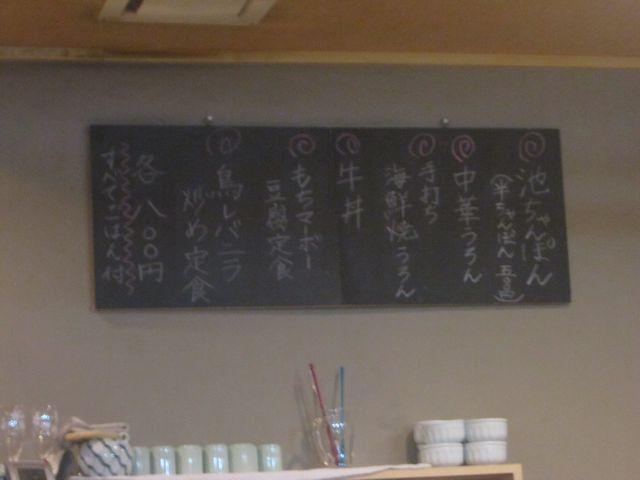 池ちゃんぽん
(半ちゃんぽん 五〇〇円)
中華うどん
手打ち
海鮮焼うどん
牛丼
もちマーボー
豆腐定食
鳥レバニラ
炒め定食
各 八〇〇円
すべてごはん付